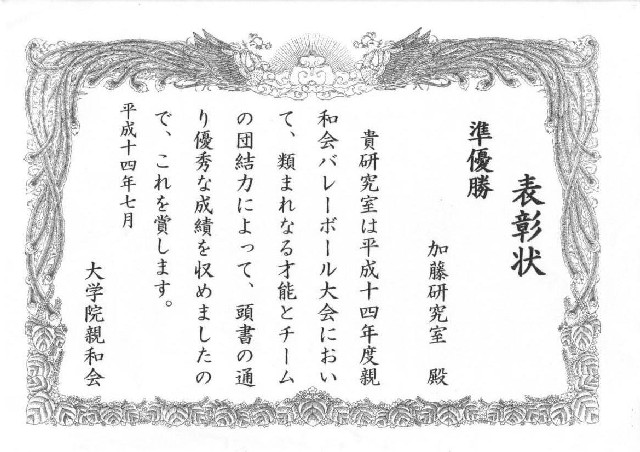 表彰状
準優勝
加藤研究室　殿
貴研究室は平成十四年度親
和会バレーボール大会におい
て、類まれなる才能とチーム
の団結力によって、頭書の通
り優秀な成績を収めましたの
で、これを賞します。
平成十四年七月
大学院親和会